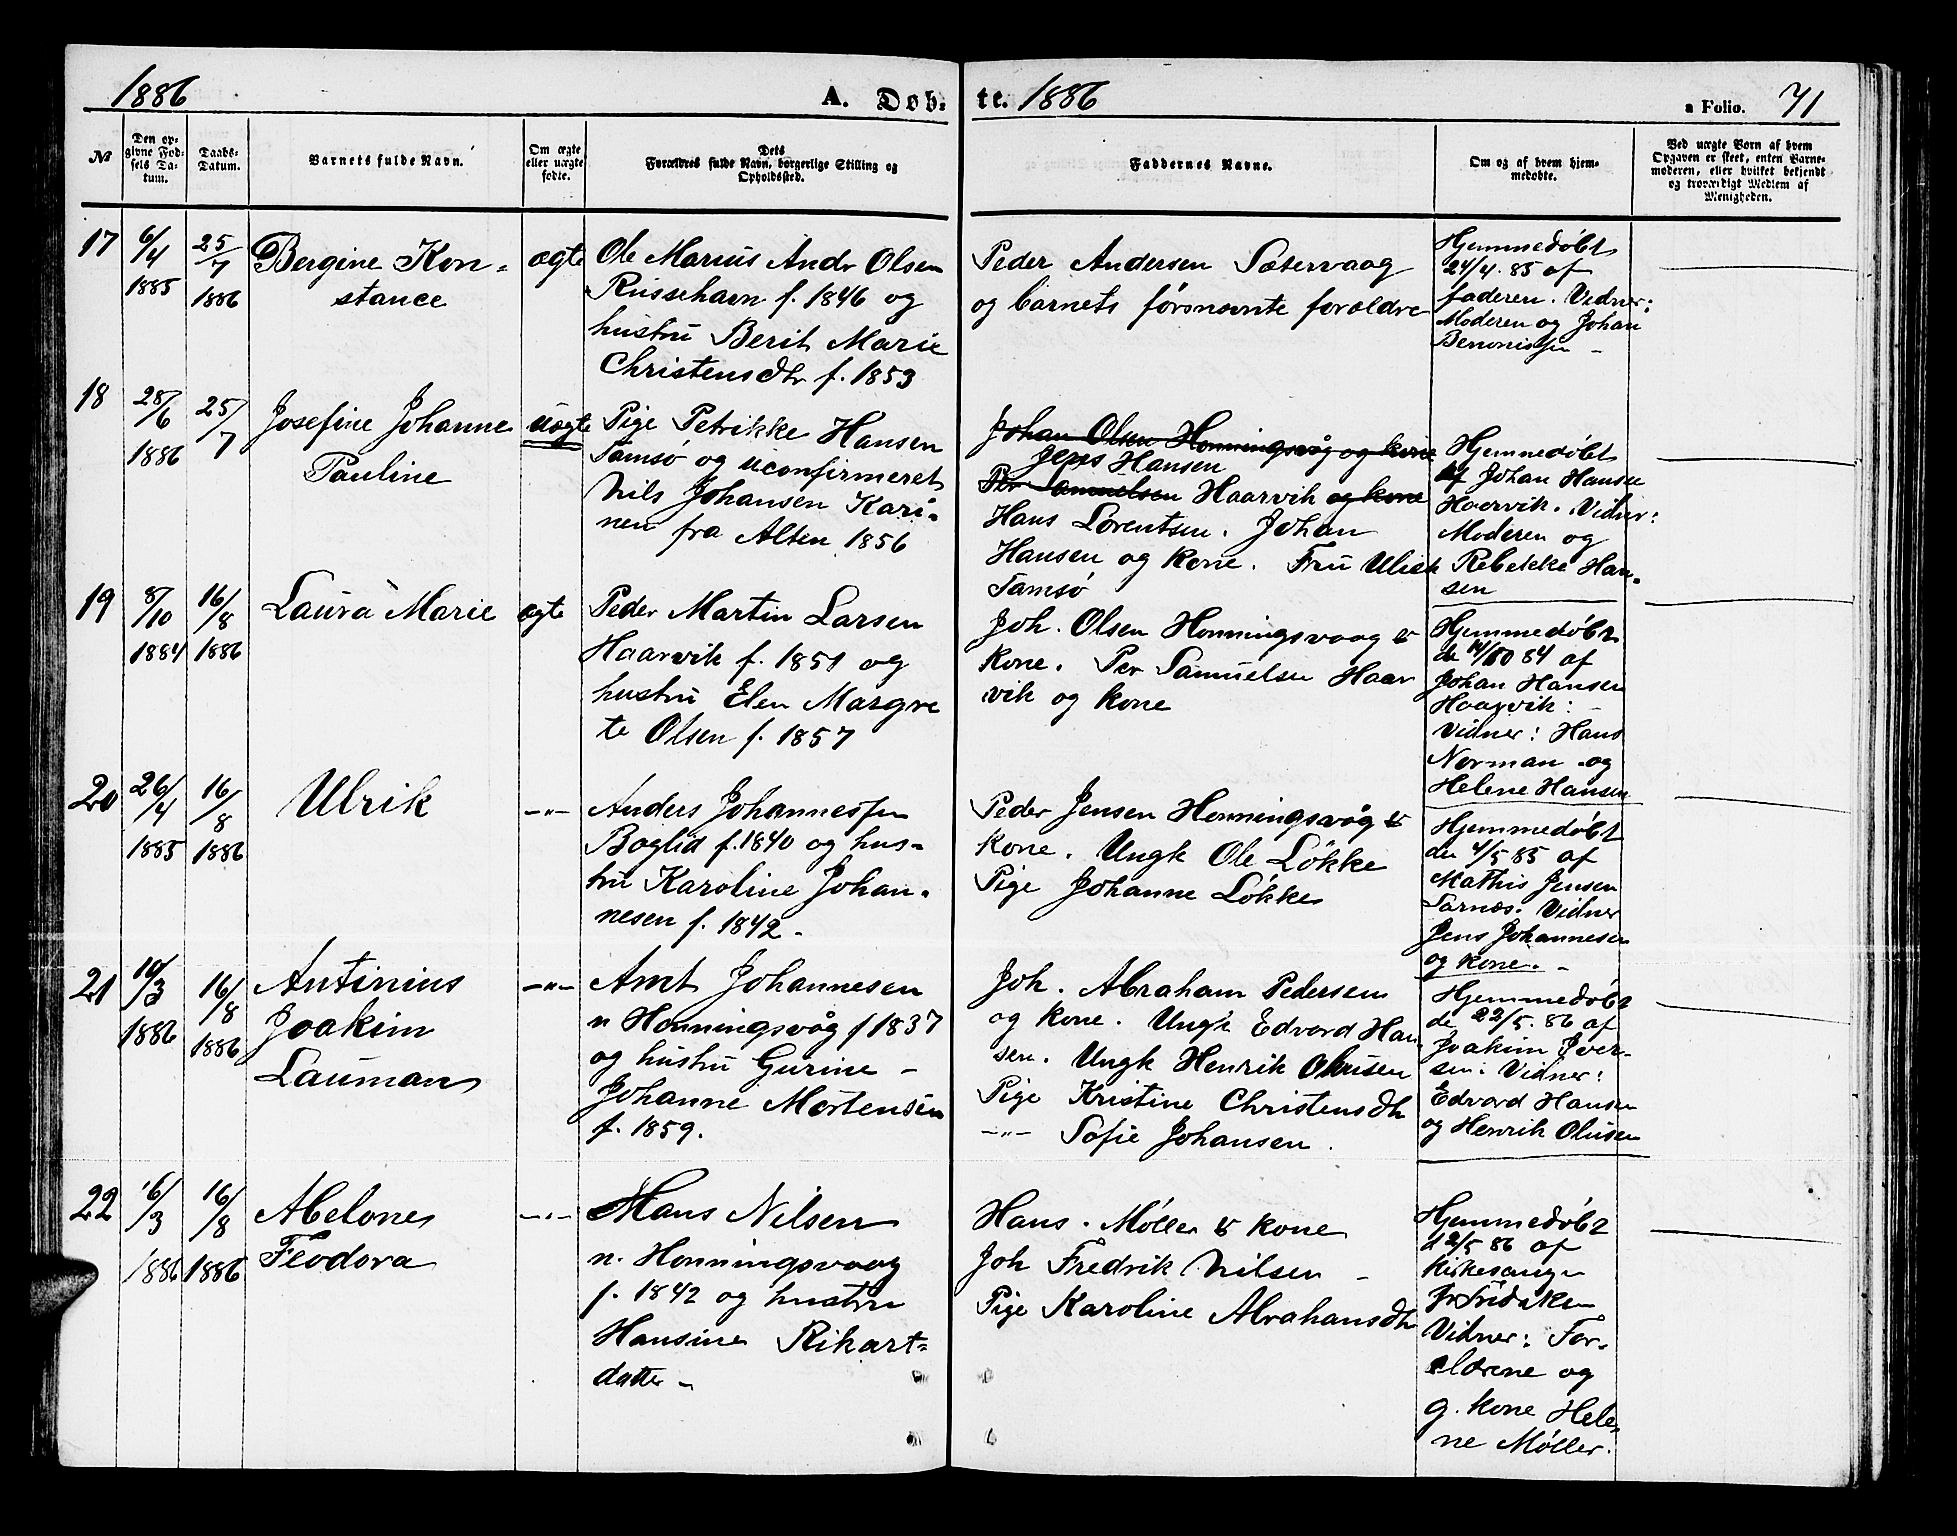 1886
A. Døb-
te. 1886
a Folio. 71
№
Den op-
givne Fød-
sels Da-
tum.
Daabs-
Datum.
Barnets fulde Navn.
Om ægte
eller uægte
fødte.
Dets
Forældres fulde Navn, borgerlige Stilling og
Opholdssted.
Faddernes Navne.
Om og af hvem hjem-
medøbte.
Ved uægte Børn af hvem
Opgaven er skeet, enten Barne-
moderen, eller hvilket bekjendt
og troværdigt Medlem af
Menigheden.
17
6/4
1885
25/7
1886
Bergine Kon-
stance
ægte
Ole Marius Andr Olsen
Russehavn f. 1846 og
hustru Berit Marie
Christensdtr f. 1853
Peder Andersen Sætervaag
og barnetsførnævnte forældre
Hjemmedøbt
24/4. 85 af
faderen. Vidner:
Moderen og Johan
Benonissen -
18
28/6
1886
25/7
Josefine Johanne
Pauline
uægte
Pige Petrikke Hansen
Tamsø og uconfirmeret
Nils Johansen Kari-
nen fra Alten 1856
Johan Olsen Honningsvåg og kone
Jens Hansen
Per Samuelsen Haarvik og kone
Hans Lorentsen. Johan
Hansen og kone. Fru Ulich
Tamsø
Hjemmedøbt
af Johan Hansen
Haarvik. Vidner:
Moderen og
Rebekke Han-
sen
19
8/10
1884
16/8
1886
Laura Marie
ægte
Peder Martin Larsen
Haarvik f. 1851 og
hustru Elen Margre
te Olsen f. 1857
Joh. Olsen Honningsvaag &
kone. Per Samuelsen Haar
vik og kone
Hjemmedøbt
de 14/10 84 af
Johan Hansen
Haarvik:
Vidner: Hans
Norman og
Helene Hansen
20
26/4
1885
16/8
1886
Ulrik
-"-
Anders Johannessen
Boglid f. 1840 og hus-
tru Karoline Johan-
nesen f. 1842 -
Peder Jensen Honningsvåg &
kone. Ungk Ole Løkke
Pige Johanne Løkke
Hjemmedøbt
den 4/5 85 af
Mathis Jensen
Sarnæs. Vidner
Jens Johannesen
og kone. -
21
10/3
1886
16/8
1886
Antinius
Joakim
Lauman
-"-
Amt Johannesen
n Honningsvåg f 1837
og hustru Gurine -
Johanne Mortensen
f. 1859.
Joh. Abraham Pedersen
og kone. Ungk Edvard Han-
sen. Ungk Henrik Olusen
Pige Kristine Christensdtr
-"- Sofie Johansen.
Hjemmedøbt
de 22/5. 86 af
Joakim Iver-
sen. Vidner:
Edvard Hansen
og Henrik Olusen
22
16/3
1886
16/8
1886
Abelone
Feodora
-"-
Hans Nilsen
n. Honningsvaag
f. 1842 og hustru
Hansine Rikart-
datter -
Hans. Møller & kone
Joh Fredrik Nilsen -
Pige Karoline Abrahamsdtr
Hjemmedøbt
d 2/5 86 af
kirkesanger
Vidner: For-
ældrene og
g. kone Hele-
ne Møller.